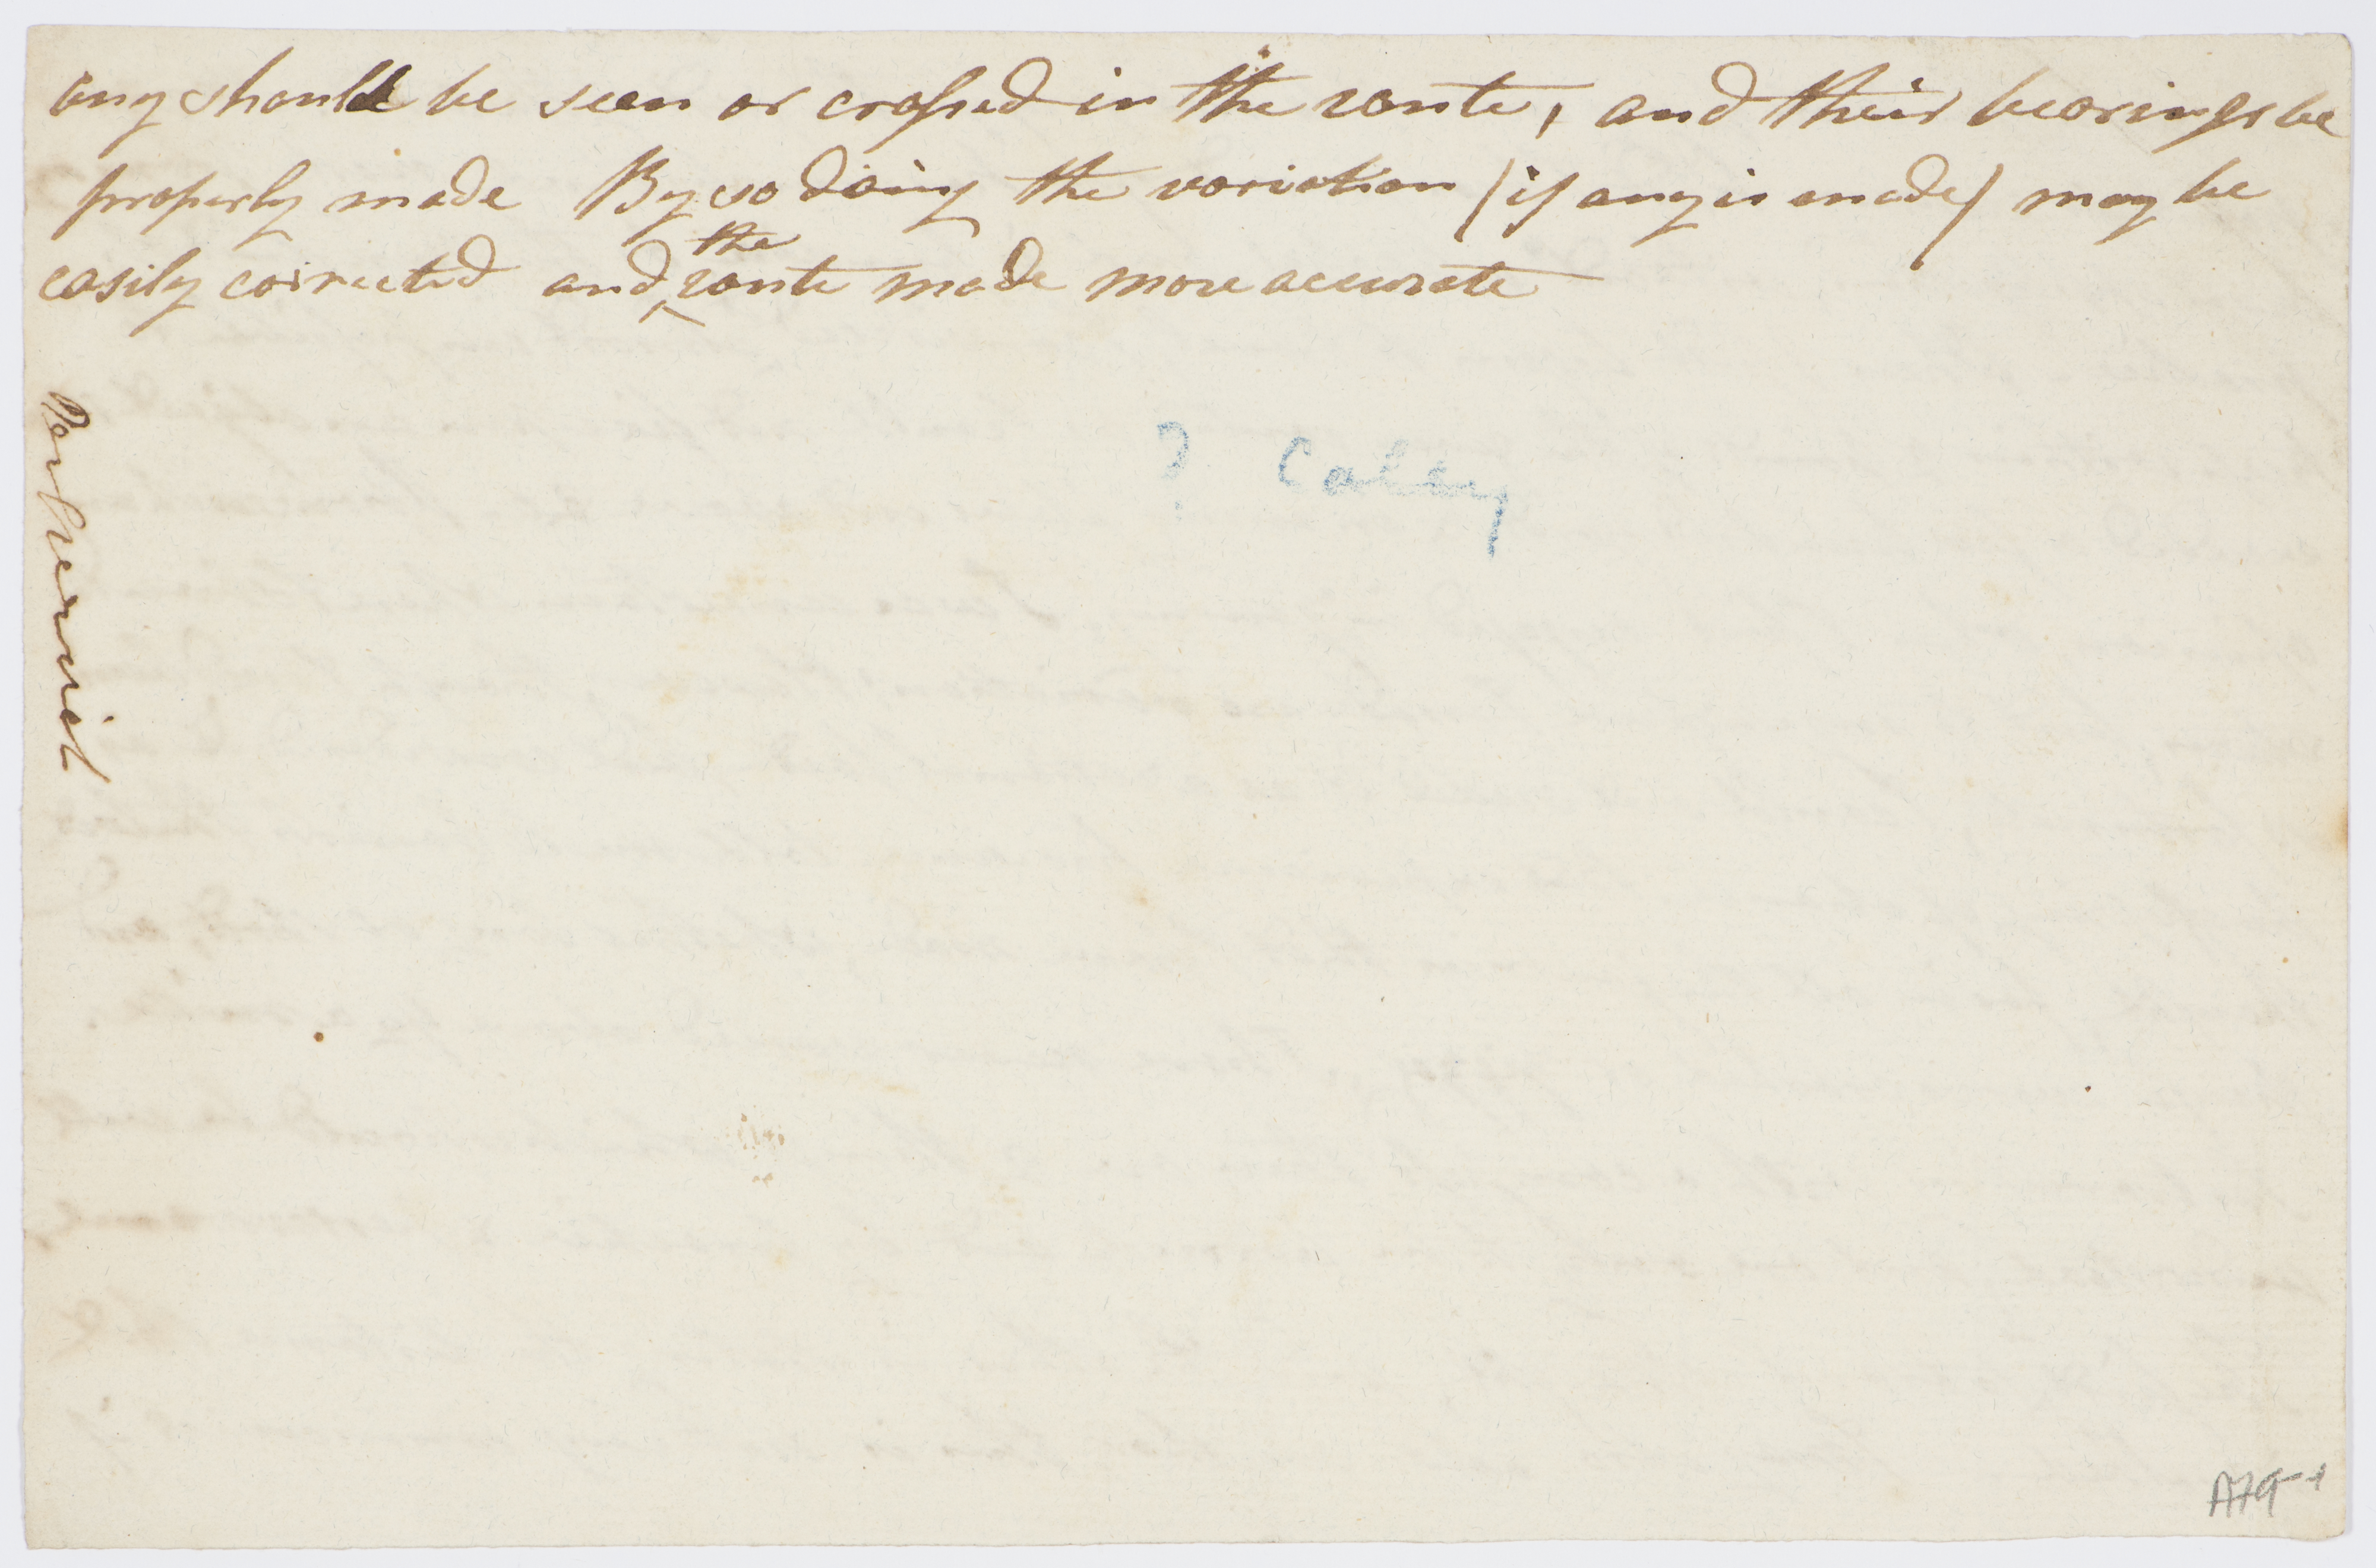 any should be seen or crossed in the route, and their bearings be
properly made By so doing the variation (if any is made) may be
easily corrected and the route made more accurate
? Caley
A79-1